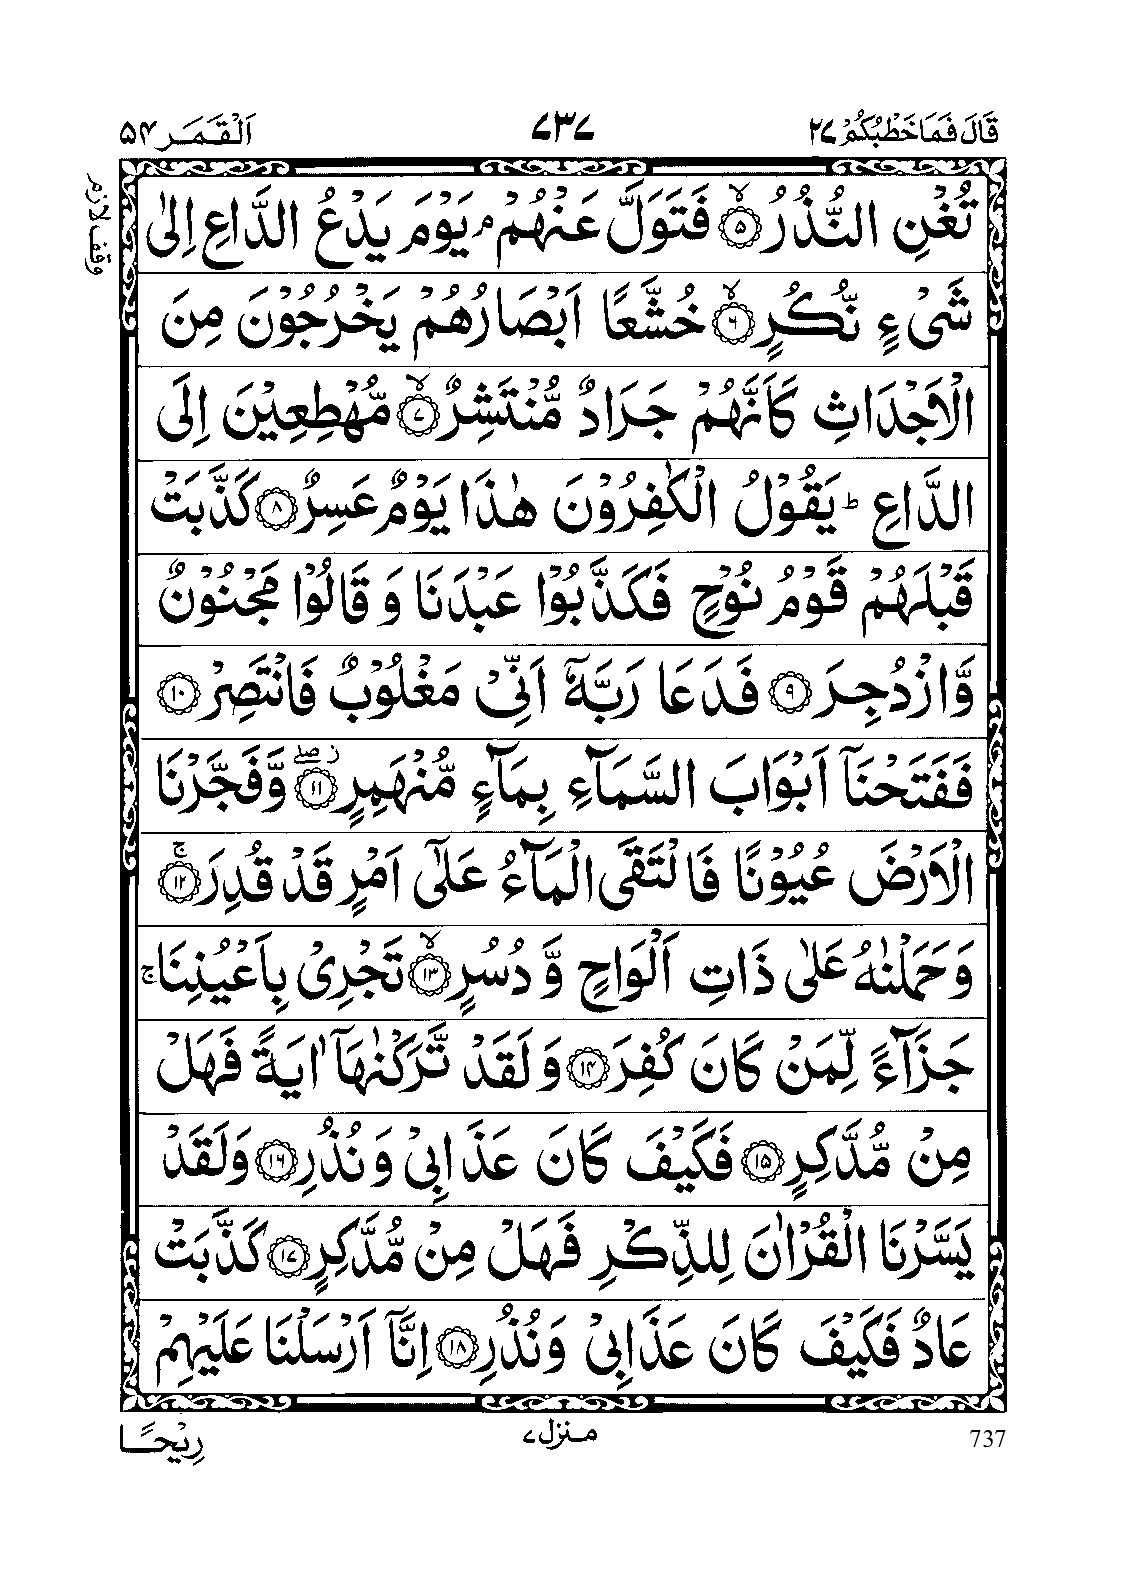 قَالَ فَمَا خَطْبُكُمْ ٢٧ ٧٣٧ اَلْقَمَر ٥٤
وقف لازم
تُغْنِ النُّذُرُ ﴿٥﴾ۙ فَتَوَلَّ عَنْهُمْ ۘ يَوْمَ يَدْعُ الدَّاعِ اِلٰى
شَیْءٍ نُّكُرٍ ﴿٦﴾ۙ خُشَّعًا اَبْصَارُهُمْ يَخْرُجُوْنَ مِنَ
الْاَجْدَاثِ كَاَنَّهُمْ جَرَادٌ مُّنْتَشِرٌ ﴿٧﴾ۙ مُّهْطِعِيْنَ اِلَى
الدَّاعِ ؕ يَقُوْلُ الْكٰفِرُوْنَ هٰذَا يَوْمٌ عَسِرٌ ﴿٨﴾ كَذَّبَتْ
قَبْلَهُمْ قَوْمُ نُوْحٍ فَكَذَّبُوْا عَبْدَنَا وَ قَالُوْا مَجْنُوْنٌ
وَّازْدُجِرَ ﴿٩﴾ فَدَعَا رَبَّهٗۤ اَنِّیْ مَغْلُوْبٌ فَانْتَصِرْ ﴿١٠﴾
فَفَتَحْنَاۤ اَبْوَابَ السَّمَآءِ بِمَآءٍ مُّنْهَمِرٍ ﴿١١﴾ۖز وَّفَجَّرْنَا
الْاَرْضَ عُيُوْنًا فَالْتَقَى الْمَآءُ عَلٰۤى اَمْرٍ قَدْ قُدِرَ ﴿١٢﴾ۚ
وَحَمَلْنٰهُ عَلٰى ذَاتِ اَلْوَاحٍ وَّ دُسُرٍ ﴿١٣﴾ۙ تَجْرِیْ بِاَعْيُنِنَا ۚ
جَزَآءً لِّمَنْ كَانَ كُفِرَ ﴿١٤﴾ وَ لَقَدْ تَّرَكْنٰهَاۤ اٰيَةً فَهَلْ
مِنْ مُّدَّكِرٍ ﴿١٥﴾ فَكَيْفَ كَانَ عَذَابِیْ وَ نُذُرِ ﴿١٦﴾ وَلَقَدْ
يَسَّرْنَا الْقُرْاٰنَ لِلذِّكْرِ فَهَلْ مِنْ مُّدَّكِرٍ ﴿١٧﴾ كَذَّبَتْ
عَادٌ فَكَيْفَ كَانَ عَذَابِیْ وَنُذُرِ ﴿١٨﴾ اِنَّاۤ اَرْسَلْنَا عَلَيْهِمْ
737 منزل ٧ رِيْحًا